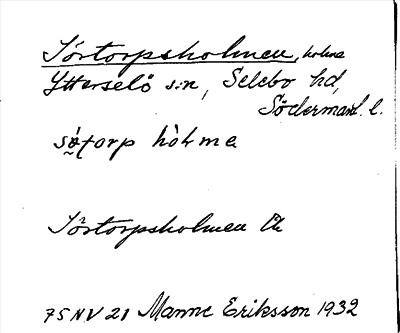 Sörtorpsholmen, holme
Ytterselö s:n, Selebo hd,
Södermanl. l.
Sörtorpsholmen
75 NV 21 Manne Eriksson 1932